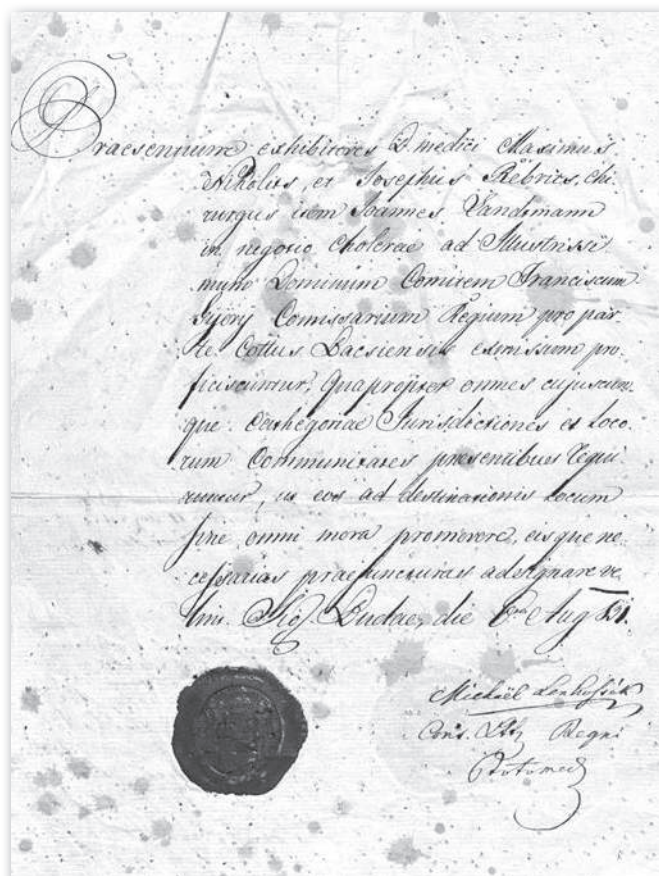 Praesentium exhibitores D. medici Maximus
Nikolits, et Josephus Rébrics, chi,
rurgus item Joannes Landmann
in negotio Cholerae ad Illustrissi,
mum Dominum Comitem Franciscum
Győry Comissarium Regium pro par,
te Cottus Bacsiensis exmissum pro,
ficiscuntur, quapropter omnes cujuscun,
que Cathegoriae Jurisdictiones et Loco,
rum Communitates praesentibus requi,
runtur, ut eos ad destinationis Locum
sine omni mora promovere, eisque ne,
cessarias praejuncturas adsignare ve,
lint. Sig. Budae, die Aug 831.
Michaël Lenhossék
Cons. Regni
Protomed